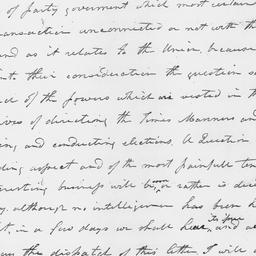 of party government which most certain
transaction unconnected or not with th
and as it relates to the Union, because
into their consideration the question
all of the powers which are vested in th
ives of directing the times Manners and
ing and conducting elections. A Question
ding aspect and of the most painfull ten
eresting business will be, or rather is deci
soon
y. although no intelligence has been
in a few days we shall hear, and
its fate
the dispatch of this letter I will